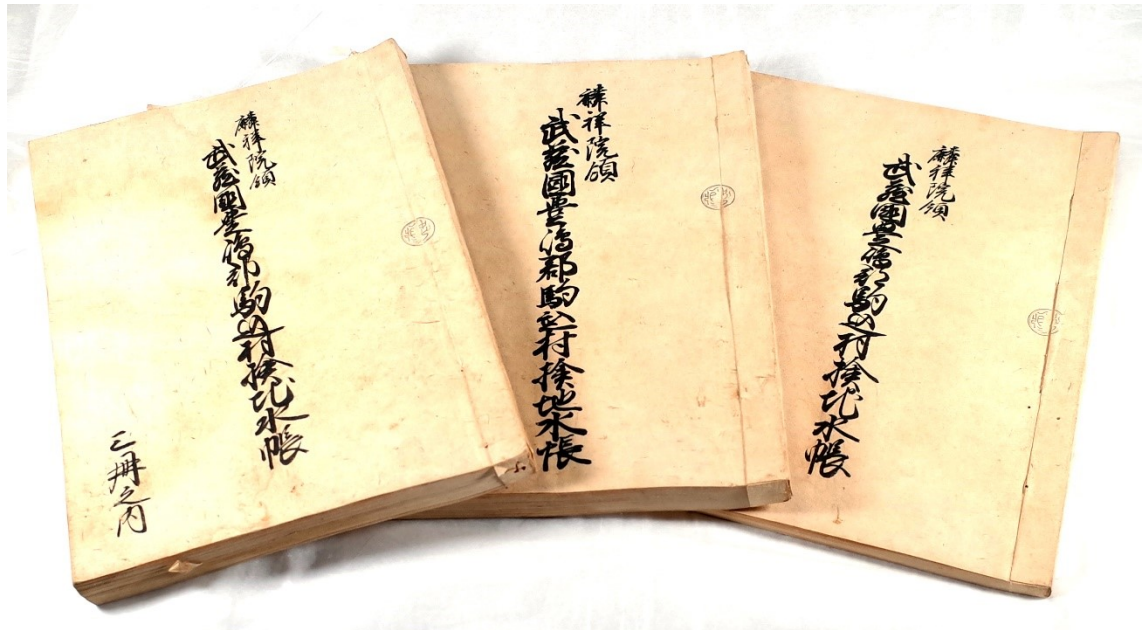 麟祥院領
武蔵國豊嶋郡駒込村検地水帳
三冊之内
麟祥院領
武蔵國豊嶋郡駒込村検地水帳
麟祥院領
武蔵國豊嶋郡駒込村検地水帳